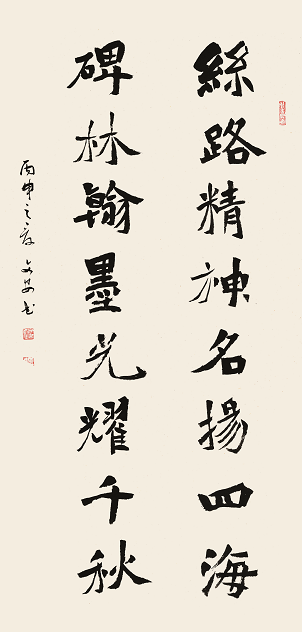 絲路精神名揚四海
碑林翰墨光耀千秋
丙申之夏